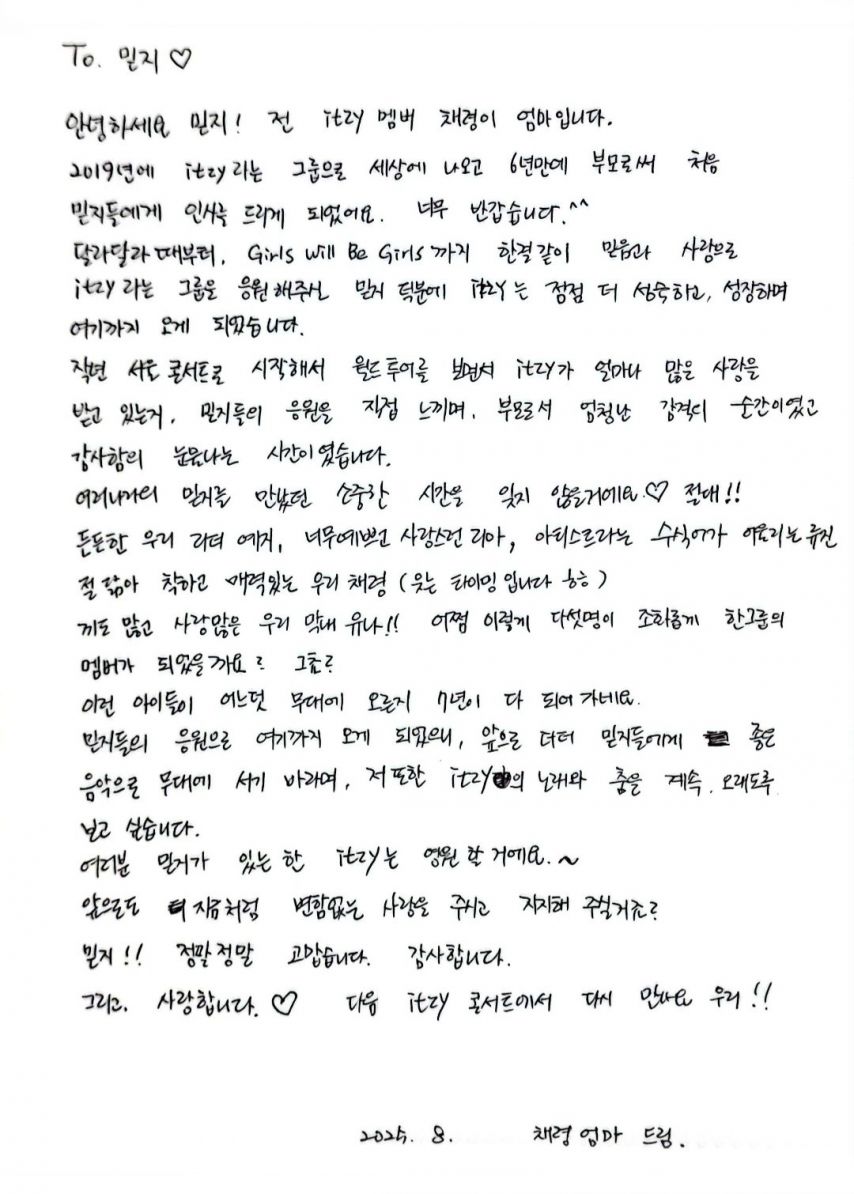 To. 믿지 ♡
안녕하세요 믿지! 전 itzy 멤버 채령이 엄마입니다.
2019년에 itzy라는 그룹으로 세상에 나오고 6년만에 부모로써 처음
믿지들에게 인사를 드리게 되었어요. 너무 반갑습니다.^^
달라달라때부터, Girls Will Be Girls까지 한결같이 믿음과 사랑으로
itzy라는 그룹을 응원해주신 믿지 덕분에 itzy는 점점 더 성숙하고, 성장하며
여기까지 오게 되었습니다.
작년 서울 콘서트로 시작해서 월드투어를 보면서 itzy가 얼마나 많은 사랑을
받고 있는거, 믿지들의 응원을 직접 느끼며, 부모로서 엄청난 감격의 순간이였고
감사함의 눈물나는 시간이였습니다.
여러나라의 믿지들 만났던 소중한 시간을 잊지 않을거에요.♡ 절대!!
든든한 우리 리더 예지, 너무예쁘고 사랑스런 리아, 아티스트라는 수식어가 어울리는 류진
절 닮아 착하고 매력있는 우리 채령 (웃는 타이밍입니다 ㅎㅎ)
끼도 많고 사랑많은 우리 막내 유나!! 어쩜 이렇게 다섯명이 조화롭게 한그룹의
멤버가 되었을까요? 그쵸?
이런 아이들이 어느덧 무대에 오른지 7년이 다 되어 가네요.
믿지들의 응원으로 여기까지 오게 되었으니, 앞으로 더더 믿지들에게 좋은
음악으로 무대에 서기 바라며, 저 또한 itzy의 노래와 춤을 계속. 오래도록
보고 싶습니다.
여러분 믿지가 있는 한 itzy는 영원할 거에요.~
앞으로도 지금처럼 변함없는 사랑을 주시고 지지해 주실거죠?
믿지!! 정말정말 고맙습니다. 감사합니다.
그리고. 사랑합니다.♡ 다음 itzy 콘서트에서 다시 만나요 우리!!
2025. 8. 채령 엄마 드림.